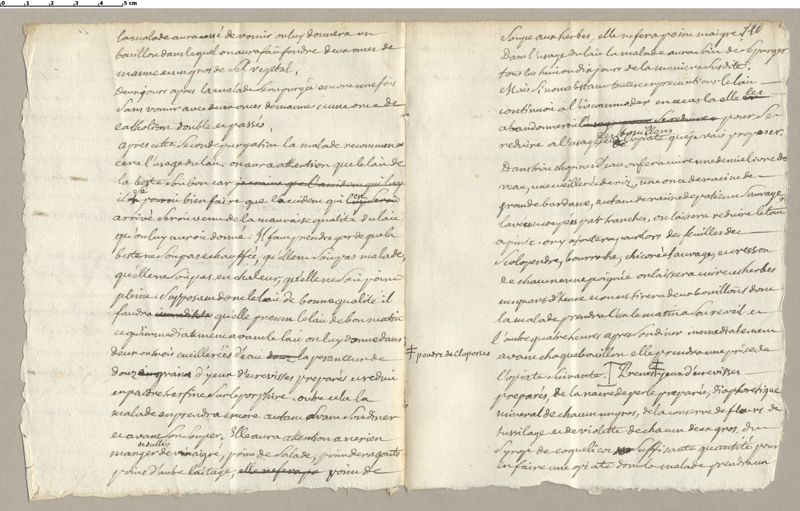 la malade aura cessé de vomir on luy donnera un
bouillon dans lequel on aura fait fondre deux onces de
manne et un gros de sel vegetal.
deux jours apres la malade sera purgée encore une fois
sans vomir avec deux onces de manne et une once de
catholicon double et passés.
apres cette seconde purgation la malade recommen
cera l'usage du lait. on aura attention que le lait de
la beste soit bon car je crains que l'accident qui luy
il pourroit bien se faire que l'accident qui luy est
arrivé est provenu de la mauvaise qualité du lait
qu'on luy auroit donné. Il faut prendre garde que la
beste ne soit pas echauffée, qu'elle ne soit pas malade,
qu'elle ne soit pas en chaleur, qu'elle ne soit point
pleine. Supposant donc le lait de bonne qualité il
faudra qu'elle prenne le lait de bon matin
et qu'immediatement avant le lait on luy donne dans
deux ou trois cueillerées d'eau douz la pesanteur de
douze grains d'yeux d'ecrevisses preparés et reduits
en poudre tres fine sur le porphire. outre cela la
malade en prendra encore autant avant son diner
et avant son souper. Elle aura attention a ne rien
manger de vinaigre, point de salade, point de ragouts
point d'autre laitage, elle ne fera pas point de
‡ poudre de cloportes
140
Soupe aux herbes, elle ne fera point maigre.
Dans l'usage du lait la malade aura soin de se purger
tous les huit ou dix jours de la maniere susdite.
Mais si nonobstant toutes ces precautions le lait
continuoit a l'incommoder en ce cas la elle
abandonneroit l'usage pour se
reduire a l'usage des bouillons et de l'opiate que je vais proposer.
Dans trois chopines d'eau on fera cuire une demie livre de
veau, une cueillerée de riz, une once de racine de
grande bardane, autant de racine de patience sauvage
lavées coupées par tranches, on laissera reduire le tout
a pinte. on y ajoutera pour lors des feuilles de
Scolopendre, bourroche, chicorée sauvage, et cresson
de chacun une poignée on laissera cuire ces herbes
un quart d'heure et on en tirera deux bouillons dont
la malade prendra l'un le matin a son reveil et
l'autre quatre heures apres son diner immediatement
avant chaque bouillon elle prendra une prise de
l'opiate suivante. Prenez ‡ yeux d'ecrevisses
preparés, de la nacre de perle preparée, diaphoretique
mineral de chacun un gros, de la conserve de fleurs de
tussilage et de violette de chacun deux gros, du
Syrop de coquelicot suffisante quantité pour
en faire une opiate dont la malade prendra un